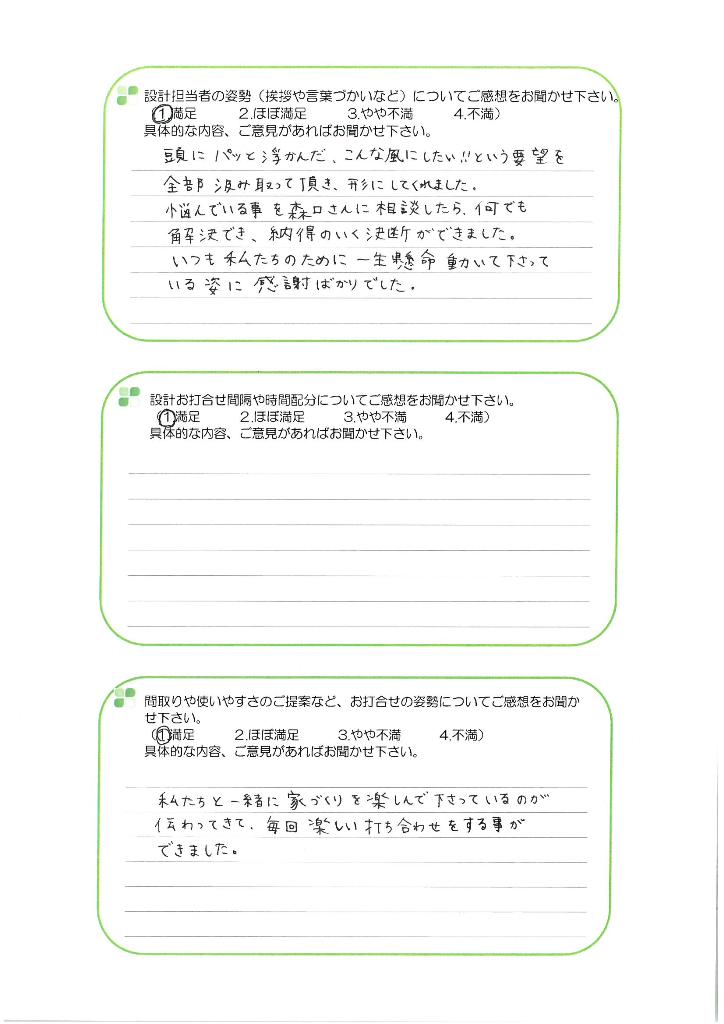 設計担当者の姿勢（挨拶や言葉づかいなど）についてご感想をお聞かせ下さい。
（1.満足　2.ほぼ満足　3.やや不満　4.不満）
具体的な内容、ご意見があればお聞かせ下さい。
頭に パッと浮かんだ、こんな風にしたい!!という要望を
全部 汲み取って頂き、形にしてくれました。
悩んでいる事を森口さんに相談したら、何でも
解決でき、納得のいく決断ができました。
いつも 私たちのために 一生懸命 動いて下さって
いる 姿に 感謝ばかりでした。
設計お打合せ間隔や時間配分についてご感想をお聞かせ下さい。
（1.満足　2.ほぼ満足　3.やや不満　4.不満）
具体的な内容、ご意見があればお聞かせ下さい。
間取りや使いやすさのご提案など、お打合せの姿勢についてご感想をお聞か
せ下さい。
（1.満足　2.ほぼ満足　3.やや不満　4.不満）
具体的な内容、ご意見があればお聞かせ下さい。
私たちと一緒に 家づくりを楽しんで下さっているのが
伝わってきて、毎回 楽しい 打ち合わせをする事が
できました。